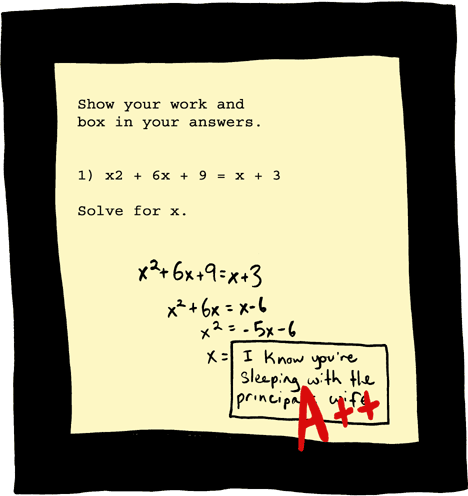 Show your work and
box in your answers.
1) x2 + 6x + 9 = x + 3
Solve for x.
x²+6x+9=x+3
x²+6x = x-6
x² = -5x-6
x = I know you're
sleeping with the
principal's wife
A++